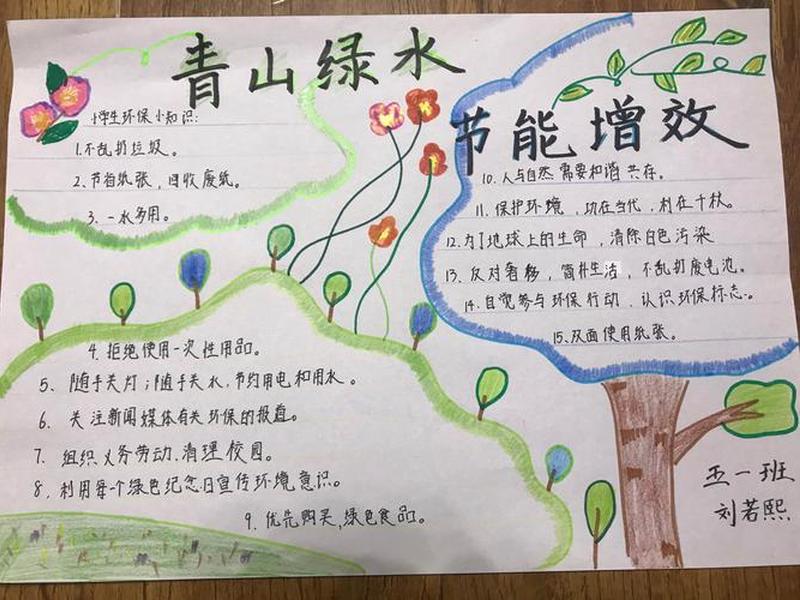 青山绿水
节能增效
小学生环保小知识:
1.不乱扔垃圾。
2.节省纸张，回收废纸。
3.一水多用。
4.拒绝使用一次性用品。
5、随手关灯;随手关水,节约用电和用水。
6、关注新闻媒体有关环保的报道。
7、组织义务劳动,清理校园。
8、利用每个绿色纪念日宣传环境意识。
9、优先购买,绿色食品。
10.人与自然需要和谐共存。
11.保护环境，功在当代，利在千秋。
12.为了地球上的生命，清除白色污染
13.反对奢侈，简朴生活，不乱扔废电池。
14.自觉参与环保行动、认识环保标志。
15.双面使用纸张。
五一班
刘若熙